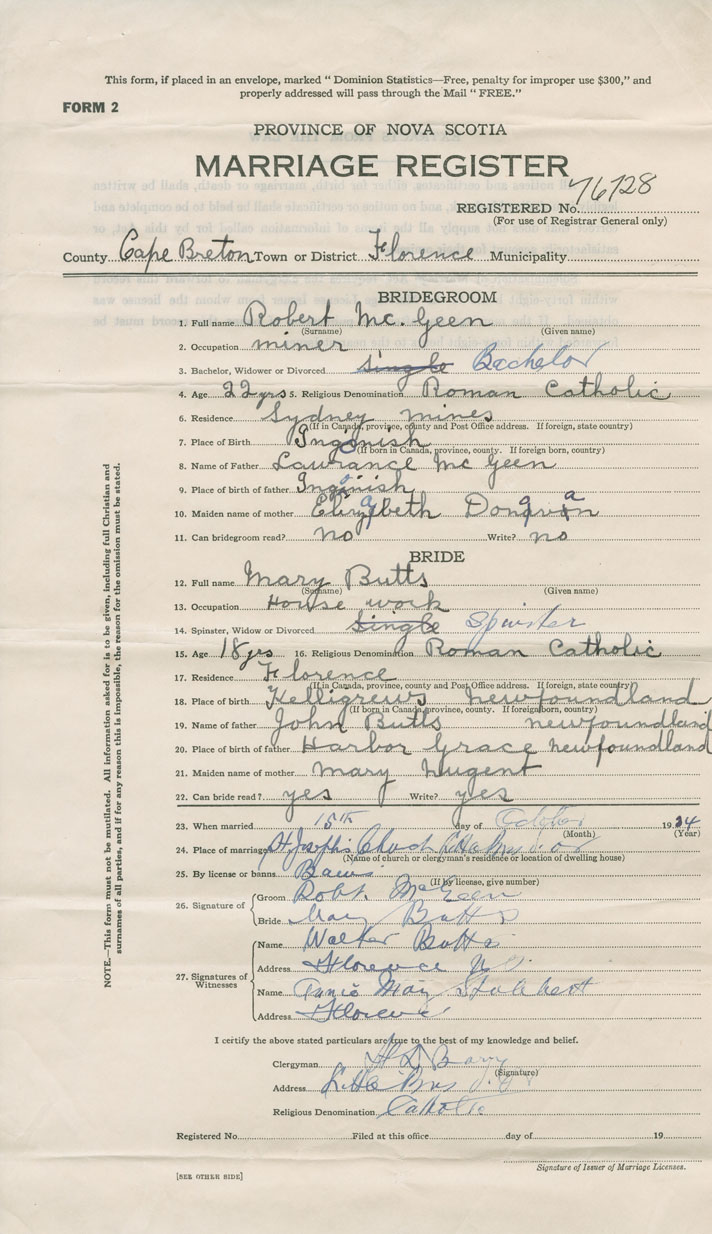 This form, if placed in an envelope, marked " Dominion Statistics—Free, penalty for improper use $300," and
properly addressed will pass through the Mail " FREE."
FORM 2
PROVINCE OF NOVA SCOTIA
MARRIAGE REGISTER
REGISTERED No. 76728
(For use of Registrar General only)
County Cape Breton Town or District Florence Municipality
BRIDEGROOM
1. Full name Robert Mc. Geen
(Surname) (Given name)
2. Occupation miner
3. Bachelor, Widower or Divorced single Bachelor
4. Age 22 yrs 5. Religious Denomination Roman Catholic
6. Residence Sydney mines
(If in Canada, province, county and Post Office address. If foreign, state country)
7. Place of Birth Ingonish
(If born in Canada, province, county. If foreign born, country)
8. Name of Father Lawrance Mc Geen
9. Place of birth of father Ingonish
10. Maiden name of mother Elizabeth Donavan
11. Can bridegroom read? no Write? no
BRIDE
12. Full name Mary Butts
(Surname) (Given name)
13. Occupation House work
14. Spinster, Widow or Divorced Single Spinster
15. Age 18 yrs 16. Religious Denomination Roman Catholic
17. Residence Florence
(If in Canada, province, county and Post Office address. If foreign, state country)
18. Place of birth Kelligrews newfoundland
(If born in Canada, province, county. If foreign born, country)
19. Name of father John Butts newfoundland
20. Place of birth of father Harbor Grace newfoundland
21. Maiden name of mother mary Nugent
22. Can bride read? yes Write? yes
23. When married 15th day of October 1934
(Month) (Year)
24. Place of marriage St Joseph's Church
(Name of church or clergyman's residence or location of dwelling house)
25. By license or banns
(If by license, give number)
26. Signature of
Groom Robt. McGeen
Bride Mary Butts
27. Signatures of Witnesses
Name Walter Butts
Address Florence
Name May
Address Florence
I certify the above stated particulars are true to the best of my knowledge and belief.
Clergyman
(Signature)
Address
Religious Denomination Catholic
Registered No. Filed at this office day of 19
Signature of Issuer of Marriage Licenses.
[SEE OTHER SIDE]
NOTE.—This form must not be mutilated. All information asked for is to be given, including full Christian and
surnames of all parties, and if for any reason this is impossible, the reason for the omission must be stated.